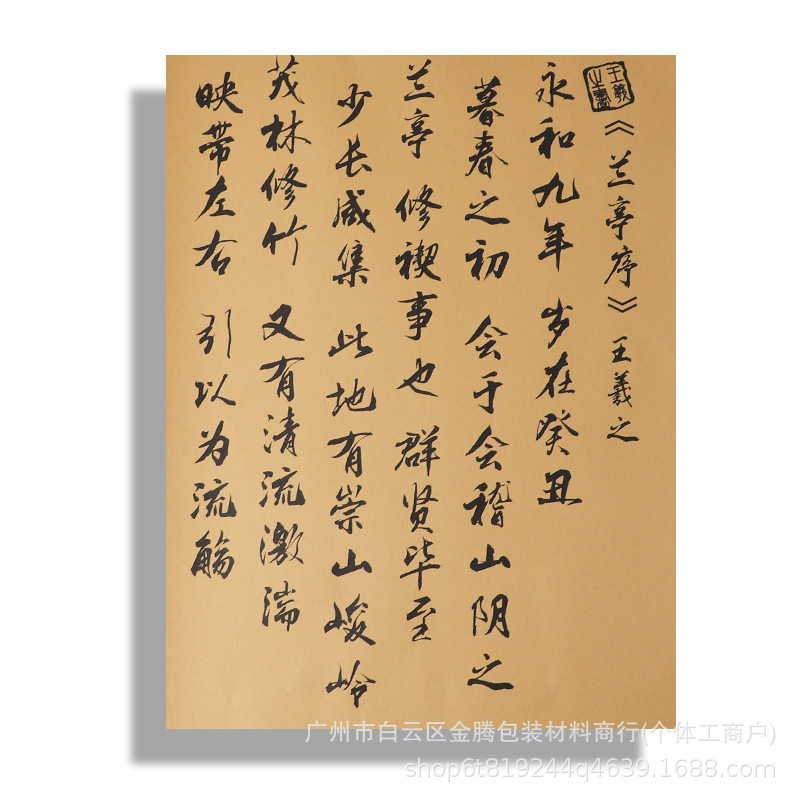 王羲之書
《兰亭序》王羲之
永和九年 岁在癸丑
暮春之初 会于会稽山阴之
兰亭 修禊事也 群贤毕至
少长咸集 此地有崇山峻岭
茂林修竹 又有清流激湍
映带左右 引以为流觞
广州市白云区金腾包装材料商行(个体工商户)
shop6t819244q4639.1688.com